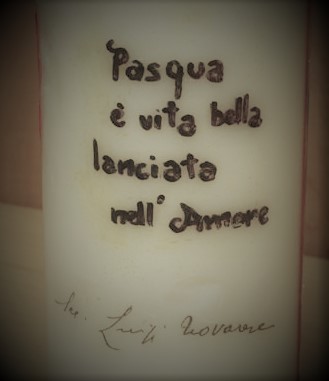 Pasqua
è vita bella
lanciata
nell' Amore
Luigi Novarese